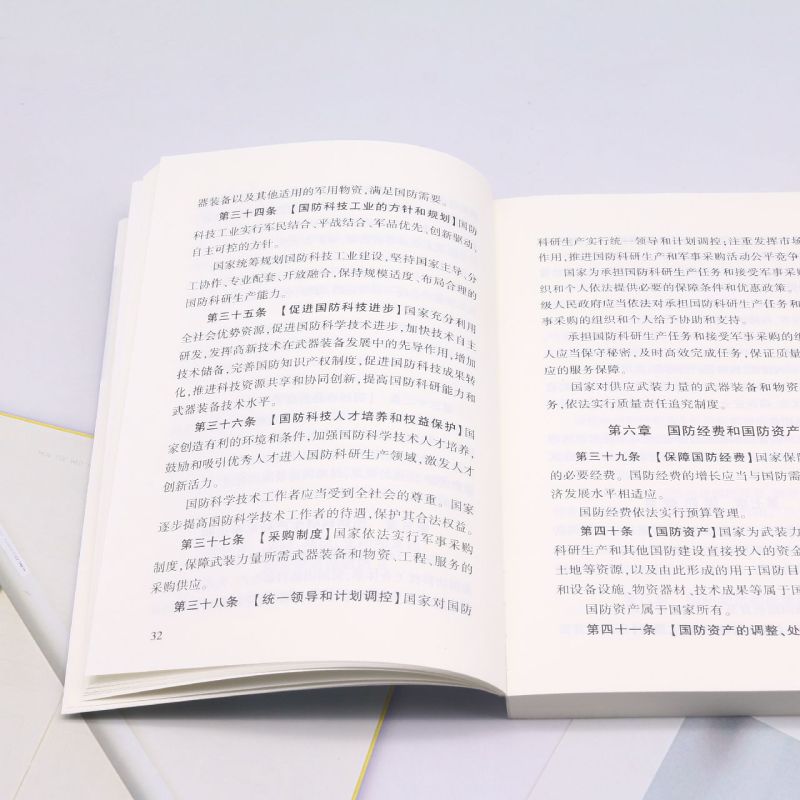 器装备以及其他适用的军用物资,满足国防需要。
第三十四条 【国防科技工业的方针和规划】国防
科技工业实行军民结合、平战结合、军品优先、创新驱动、
自主可控的方针。
国家统筹规划国防科技工业建设,坚持国家主导、分
工协作、专业配套、开放融合,保持规模适度、布局合理的
国防科研生产能力。
第三十五条 【促进国防科技进步】国家充分利用
全社会优势资源,促进国防科学技术进步,加快技术自主
研发,发挥高新技术在武器装备发展中的先导作用,增加
技术储备,完善国防知识产权制度,促进国防科技成果转
化,推进科技资源共享和协同创新,提高国防科研能力和
武器装备技术水平。
第三十六条 【国防科技人才培养和权益保护】国
家创造有利的环境和条件,加强国防科学技术人才培养,
鼓励和吸引优秀人才进入国防科研生产领域,激发人才
创新活力。
国防科学技术工作者应当受到全社会的尊重。国家
逐步提高国防科学技术工作者的待遇,保护其合法权益。
第三十七条 【采购制度】国家依法实行军事采购
制度,保障武装力量所需武器装备和物资、工程、服务的
采购供应。
第三十八条 【统一领导和计划调控】国家对国防
32
科研生产实行统一领导和计划调控;注重发挥市场
作用,推进国防科研生产和军事采购活动公平竞争
国家为承担国防科研生产任务和接受军事采购
织和个人依法提供必要的保障条件和优惠政策。
级人民政府应当依法对承担国防科研生产任务和
事采购的组织和个人给予协助和支持。
承担国防科研生产任务和接受军事采购的组
人应当保守秘密,及时高效完成任务,保证质量
应的服务保障。
国家对供应武装力量的武器装备和物资
务,依法实行质量责任追究制度。
第六章 国防经费和国防资产
第三十九条 【保障国防经费】国家保障
的必要经费。国防经费的增长应当与国防需
济发展水平相适应。
国防经费依法实行预算管理。
第四十条 【国防资产】国家为武装力
科研生产和其他国防建设直接投入的资金
土地等资源,以及由此形成的用于国防目
和设备设施、物资器材、技术成果等属于国
国防资产属于国家所有。
第四十一条 【国防资产的调整、处